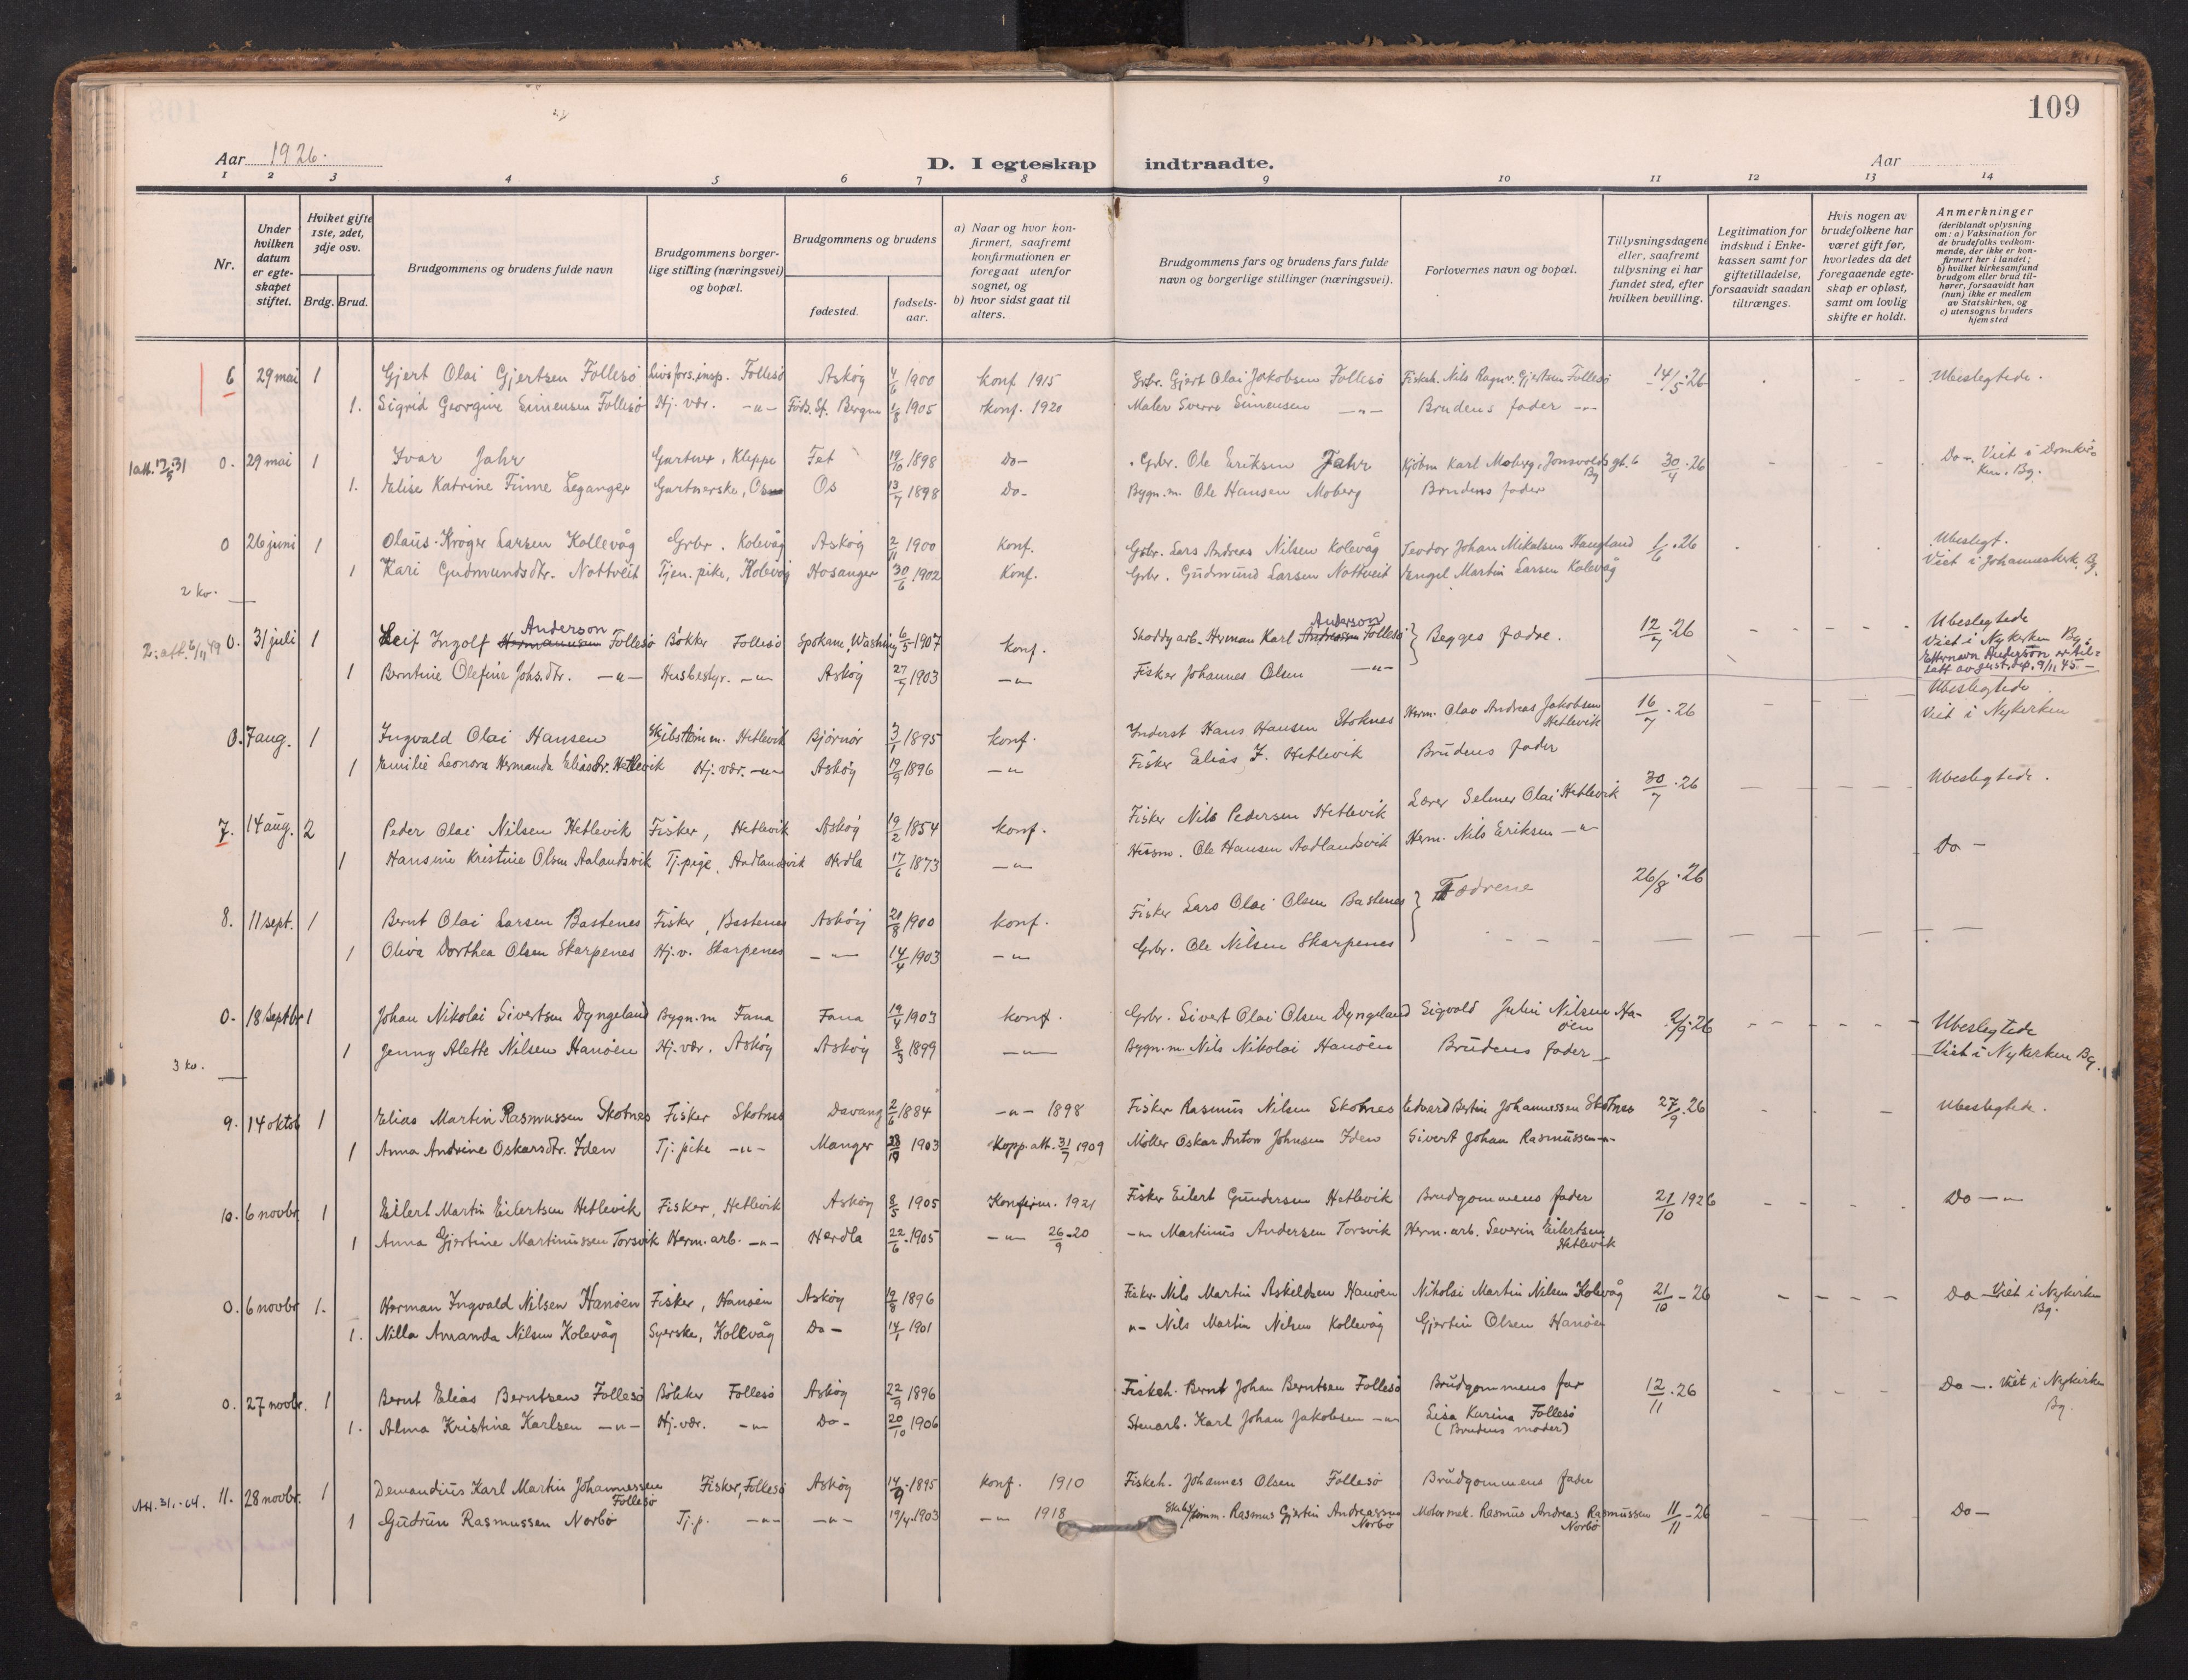 109
Aar 1926.
D. I egteskap indtraadte.
Aar
1 2 3 4 5 6 7 8 9 10 11 12 13 14
Nr.
Under hvilken datum er egteskapet stiftet.
Hviket gifte 1ste, 2det, 3dje osv.
Brdg. Brud.
Brudgommens og brudens fulde navn
Brudgommens borgerlige stilling (næringsvei) og bopæl.
Brudgommens og brudens
fødested.
fødselsaar.
a) Naar og hvor konfirmert, saafremt konfirmationen er foregaat utenfor sognet, og
b) hvor sidst gaat til alters.
Brudgommens fars og brudens fars fulde navn og borgerlige stillinger (næringsvei).
Forlovernes navn og bopæl.
Tillysningsdagene eller, saafremt tillysning ei har fundet sted, efter hvilken bevilling.
Legitimation for indskud i Enkekassen samt for giftetilladelse, forsaavidt saadan tiltrænges.
Hvis nogen av brudefolkene har været gift før, hvorledes da det foregaaende egteskap er opløst, samt om lovlig skifte er holdt.
Anmerkninger (deriblandt oplysning om: a) Vaksination for de brudefolks vedkommende, der ikke er konfirmert her i landet; b) hvilket kirkesamfund brudgom eller brud tilhører, forsaavidt han (hun) ikke er medlem av Statskirken, og c) utensogns bruders hjemsted
6 29 mai 1 Gjert Olai Gjertsen Follesø Livsfors.insp. Follesø Askøy 4/6 1900 konf. 1915 Grbr. Gjert Olai Jakobsen Follesø Fiskeh. Nils Ragnv. Gjertsen Follesø 14/5·26 Ubeslegtede.
1. Sigrid Georgine Simensen Follesø Hj. vær. -"- Føds.st. Bergen 1/8 1905 konf. 1920 Maler Sverre Simensen -"- Brudens fader -"-
1 att. 12/5 31 0. 29 mai 1 Ivar Jahr Gartner, Kleppe Fet 19/10 1898 Do- Gbr. Ole Eriksen Jahr Kjøbm Karl Moberg, Jonsvolds gt. 6 By 30/4·26 Do-. Viet i Domkirken, Bg.
1. Elise Katrine Finne Leganger Gartnerske, Os Os 13/7 1898 Do- Bygn.m. Ole Hansen Moberg Brudens fader
0 26 juni 1 Olaus Krøger Larsen Kollevåg Grbr. Kolevåg Askøy 2/11 1900 Konf. Grbr. Lars Andreas Nilsen Kolevåg Teodor Johan Mikalsen Haugland 1/6·26 Ubeslegt.
1 Kari Gudmundsdtr. Nottveit Tjen.pike, Kolevåg Hosanger 30/6 1902 Konf. Grbr. Gudmund Larsen Nottveit Engel Martin Larsen Kolevåg Viet i Johanneskirk. Bg.
2 ko.
2. att. 6/11 49 0. 31 juli 1 Leif Ingolf Hermannsen Anderson Follesø Bøkker Follesø Spokane, Washing 6/5 1907 konf. Shoddyarb. Herman Karl Andreassen Anderson Follesø } Begges fædre. 12/7·26 Ubeslegtede Viet i Nykirken Bg. Etternavn Anderson er tillatt av just.dep. 9/11 45.-
1 Berntine Olefine Johs.dtr. -"- Husbestyr. -"- Askøy 27/7 1903 -"- Fisker Johannes Olsen -"-
0. 7 aug. 1 Ingvald Olai Hansen Skibstømm. Hetlevik Bjørnør 3/1 1895 konf. Inderst Hans Hansen Stoknes Herm. Olav Andreas Jakobsen Hetlevik 16/7·26 Ubeslegtede. Viet i Nykirken
1 Emilie Leonora Hermanda Eliasdr. Hetlevik Hj. vær. -"- Askøy 19/9 1896 -"- Fisker Elias J. Hetlevik Brudens fader
7. 14 aug. 2 Peder Olai Nilsen Hetlevik Fisker, Hetlevik Askøy 19/2 1854 konf. Fisker Nils Pedersen Hetlevik Lærer Selmer Olai Hetlevik 30/7·26 Ubeslegtede.
1 Hansine Kristine Olsen Aalandsvik Tj.pige, Aadlandsvik Herdla 17/6 1873 -"- Husm. Ole Hansen Aadlandsvik Herm. Nils Eriksen -"-
8. 11 sept. 1 Bernt Olai Larsen Bastenes Fisker, Bastenes Askøy 21/8 1900 konf. Fisker Lars Olai Olsen Bastenes } Fædrene 26/8·26 Do-
1 Oliva Dorthea Olsen Skarpenes Hj.v. Skarpenes -"- 14/4 1903 -"- Grbr. Ole Nilsen Skarpenes
0. 18 septbr 1 Johan Nikolai Sivertsen Dyngeland Bygn.m Fana Fana 19/4 1903 konf. Grbr. Sivert Olai Olsen Dyngeland Sigvald Julin Nilsen Hanøen 2/9·26 Ubeslegtede
1 Jenny Alette Nilsen Hanøen Hj. vær. Askøy Askøy 8/3 1899 -"- Bygn.m. Nils Nikolai Hanøen Brudens fader Viet i Nykirken Bg.
3 ko.
9. 14 oktob 1 Elias Martin Rasmussen Skotnes Fisker Skotnes Davang 2/6 1884 -"- 1898 Fisker Rasmus Nilsen Skotnes Edvard Bertin Johannessen Skotnes 27/9·26 Ubeslegtede.
1 Anna Andrine Oskarsdtr. Iden Tj. pike -"- Manger 28/10 1903 Kopp.att. 31/7 1909 Møller Oskar Anton Johnsen Iden Sivert Johan Rasmussen -"-
10. 6 novbr 1 Eilert Martin Eilertsen Hetlevik Fisker, Hetlevik Askøy 8/5 1905 Konfirm. 1921 Fisker Eilert Gundersen Hetlevik Brudgommens fader 21/10 1926 Do-"-
1 Anna Gjertine Martinussen Torsvik Herm.arb. -"- Herdla 22/6 1905 -"- 26/9-20 -"- Martinus Andersen Torsvik Herm.arb. Severin Eilertsen Hetlevik
0. 6 novbr 1. Herman Ingvald Nilsen Hanøen Fisker, Hanøen Askøy 19/8 1896 Fisker Nils Martin Askildsen Hanøen Nikolai Martin Nilsen Kolevåg 21/10-26 Do- Viet i Nykirken Bg.
1. Nilla Amanda Nilsen Kolevåg Syerske, Kollevåg Do- 14/1 1901 "- Nils Martin Nilsen Kollevåg Gjertin Olsen Hanøen
0. 27 novbr. 1 Bernt Elias Berntsen Follesø Bøkker Follesø Askøy 22/9 1896 Fiskeh. Bernt Johan Berntsen Follesø Brudgommens far 12/11·26 Do-. Viet i Nykirken Bg.
1. Alma Kristine Karlsen -"- Hj. vær. -"- Do- 20/10 1906 Stenarb. Karl Johan Jakobsen -"- Lisa Karina Follesø (Brudens moder)
Att. 31.-64. 11. 28 novbr. 1 Demandius Karl Martin Johannessen Follesø Fisker, Follesø Askøy 14/9·1895 konf. 1910 Fiskeh. Johannes Olsen Follesø Brudgommens fader
1 Gudrun Rasmussen Norbø Tj.p. -"- -"- 19/4 1903 -"- 1918 Skibstømm. Rasmus Gjertin Andreassen Norbø Motormek. Rasmus Andreas Rasmussen Norbø 11/11-26 Do-